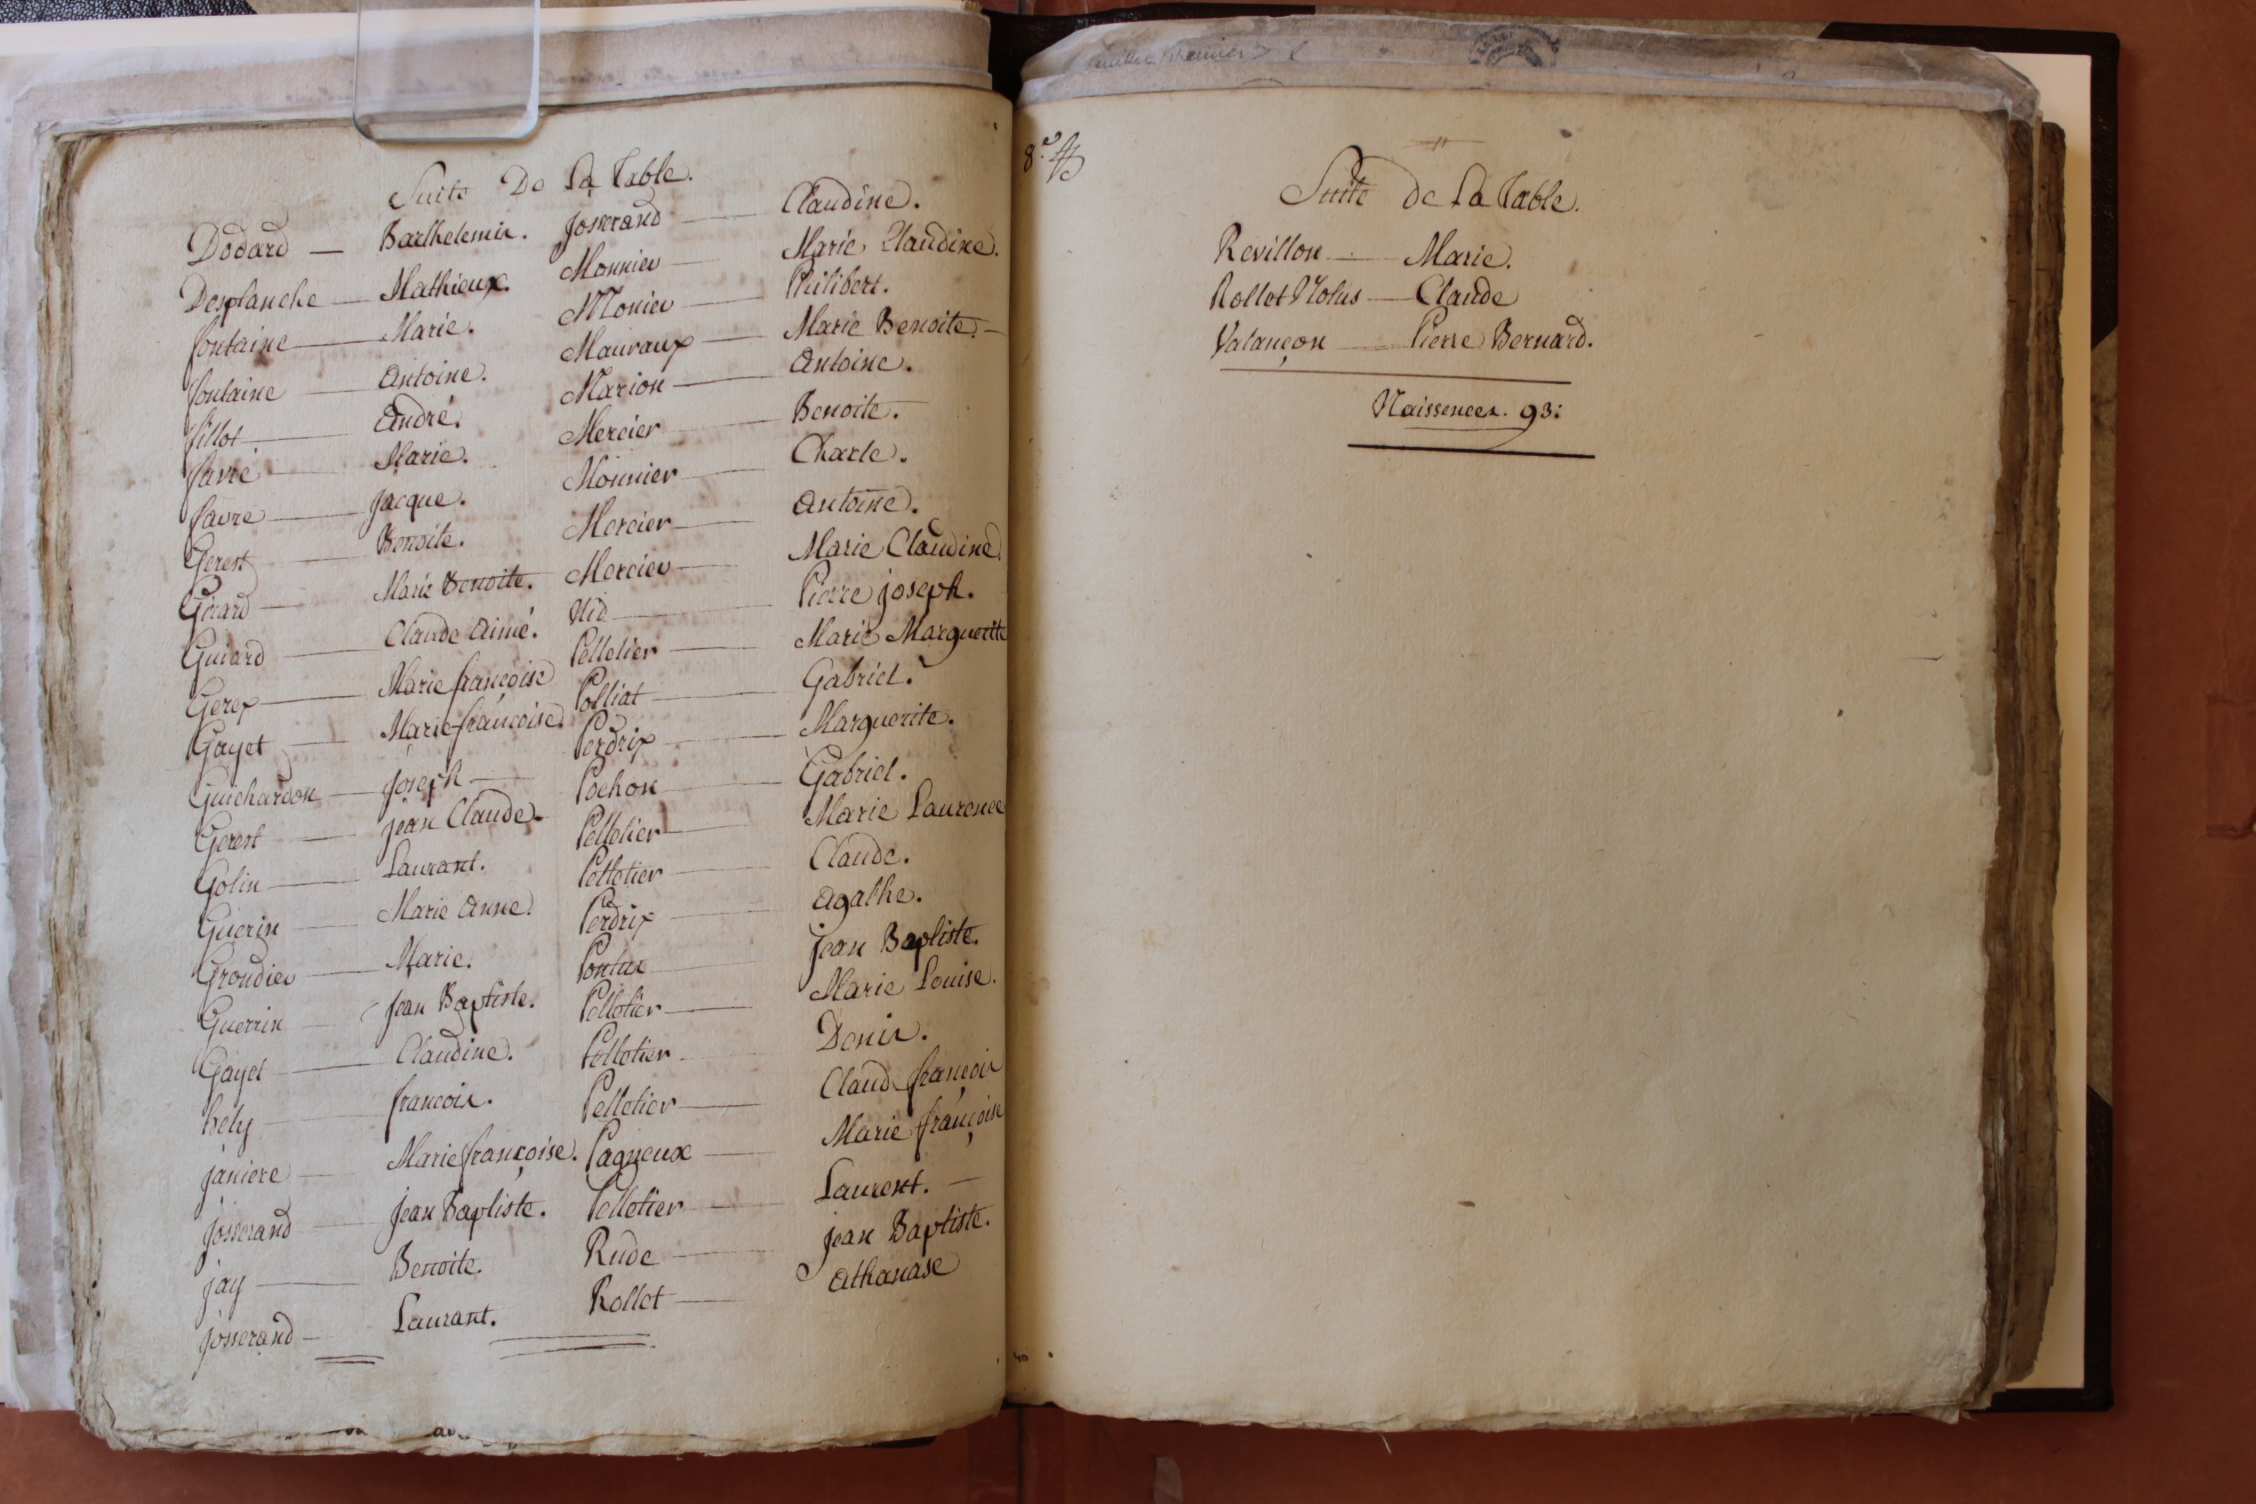 Suite De La Table.
Dodard — Barthelemie.
Desplanche — Mathieux.
fontaine — Marie.
fontaine — Antoine.
fillot — André.
favre — Marie.
favre — Jacque.
Gerest — Benoite.
Girard — Marie Benoite.
Guiard — Claude Aimé.
Gerex — Marie françoise
Gayet — Marie françoise.
Guichardon — Joseph —
Gerest — jean Claude.
Golin — Laurant.
Guerin — Marie Anne.
Grondier — Marie.
Guerrin — Jean Baptiste.
Gayet — Claudine.
hély — francois.
janiere — Marie françoise.
josserand — Jean Baptiste.
jay — Benoite.
josserand — Laurant.
Josserand — Claudine.
Monnier — Marie Claudine.
Monier — Philibert.
Mauvaux — Marie Benoite. —
Marion — Antoine.
Mercier — Benoite.
Monnier — Charle.
Mercier — Antoine.
Mercier — Marie Claudine
Nid — Pierre joseph.
Pelletier — Marie Marguerite
Polliat — Gabriel.
Perdrix — Marguerite.
Pochon — Gabriel.
Pelletier — Marie Laurence
Pelletier — Claude.
Perdrix — Agathe.
Pontux — jean Baptiste.
Pelletier — Marie Louise.
Pelletier — Denis.
Pelletier — Claud françois
Pagneux — Marie françoise
Pelletier — Laurent. —
Rude — jean Baptiste.
Rollet — Athanase
8.e
Suite de La Table.
Revillon — Marie.
Rollet Nolus — Claude
Valançon — Pierre Bernard.
Naissences. 93: